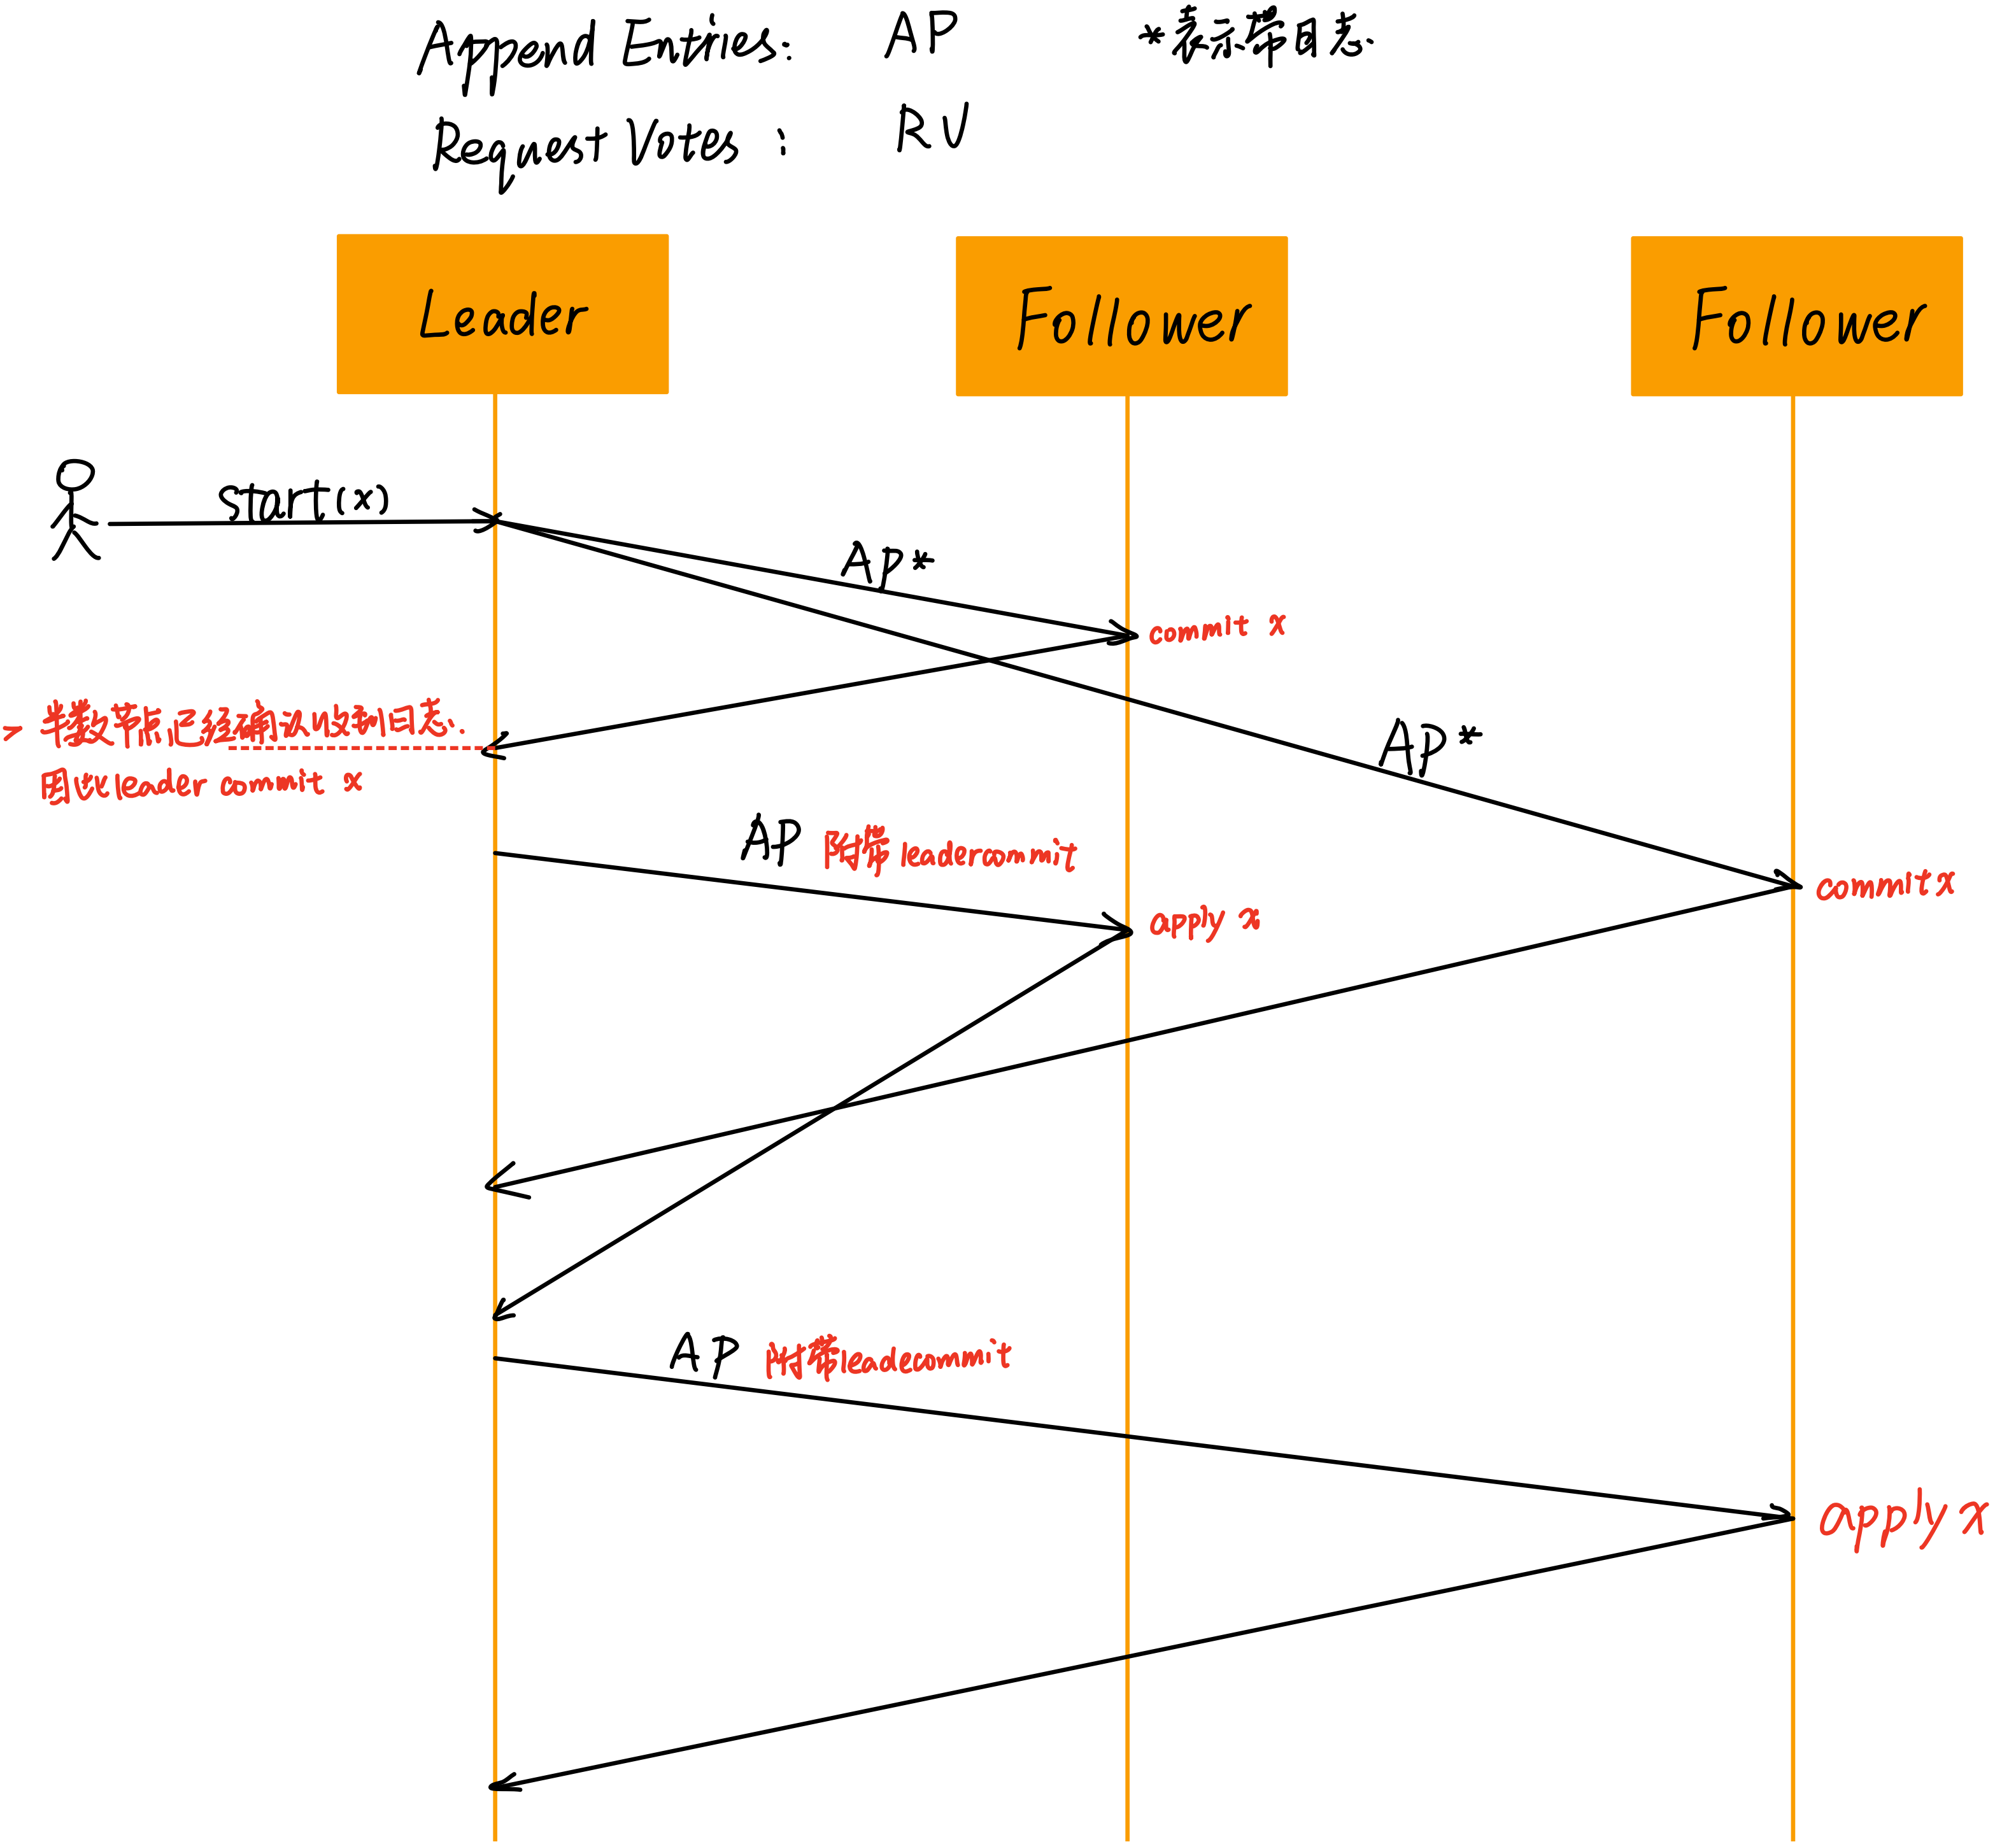 Append Entries: AP *表示带日志.
Request Votes: RV
Leader
Follower
Follower
start(x)
AP*
commit x
一半数节点已经确认收到日志.
因此leader commit x
AP*
AP 附带leadercommit
commit x
apply x
AP 附带leadecommit
apply x